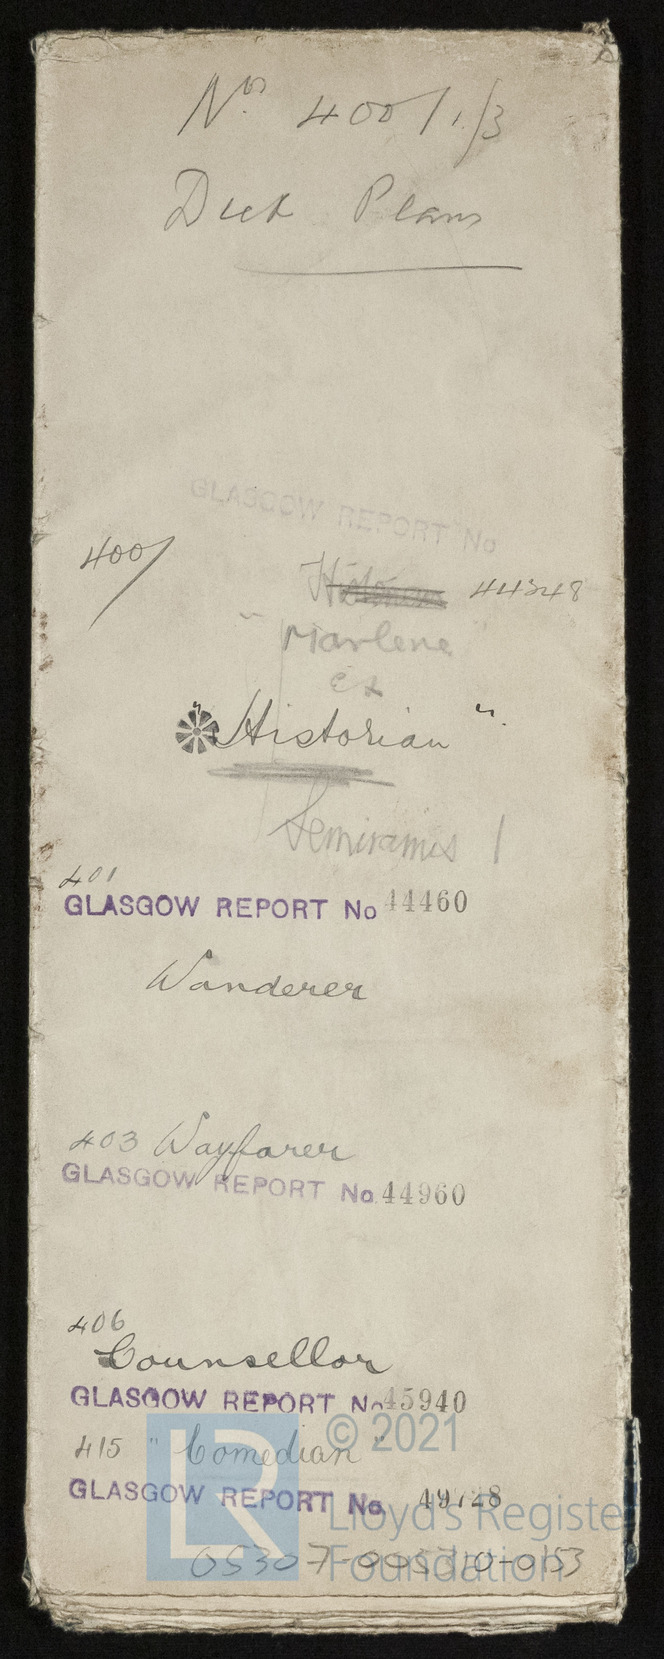 No 400/1/3
Deck Plans
GLASGOW REPORT No
400/
Historian 44348
"Marlene"
ex
"Historian".
Semiramis 1
401
GLASGOW REPORT No 44460
Wanderer
403 Wayfarer
GLASGOW REPORT No 44960
406
Counsellor
GLASGOW REPORT No 45940
415 "Comedian"
GLASGOW REPORT No 49728
© 2021
LR
Lloyd's Register
Foundation
05307-005310-0153